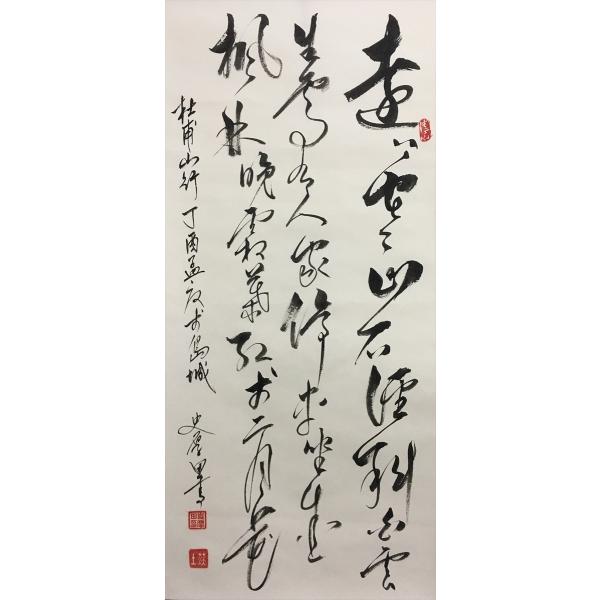 遠上寒山石徑斜白雲
生處有人家停車坐愛
楓林晚霜葉紅於二月花
杜甫山行 丁酉孟夏於島城 史書